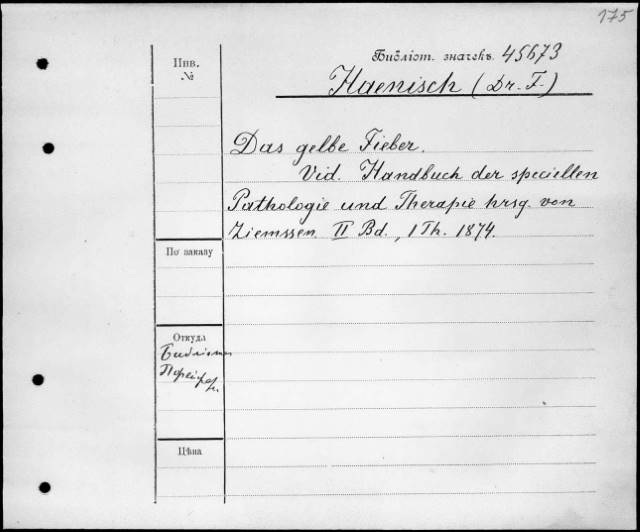 175
Инв.
№
Библіот. значекъ 45673
Haenisch (Dr. F.)
Das gelbe Fieber.
Vid. Handbuch der speciellen
Pathologie und Therapie hrsg. von
Ziemssen. II Bd., 1 Th. 1874.
По заказу
Откуда
Цѣна